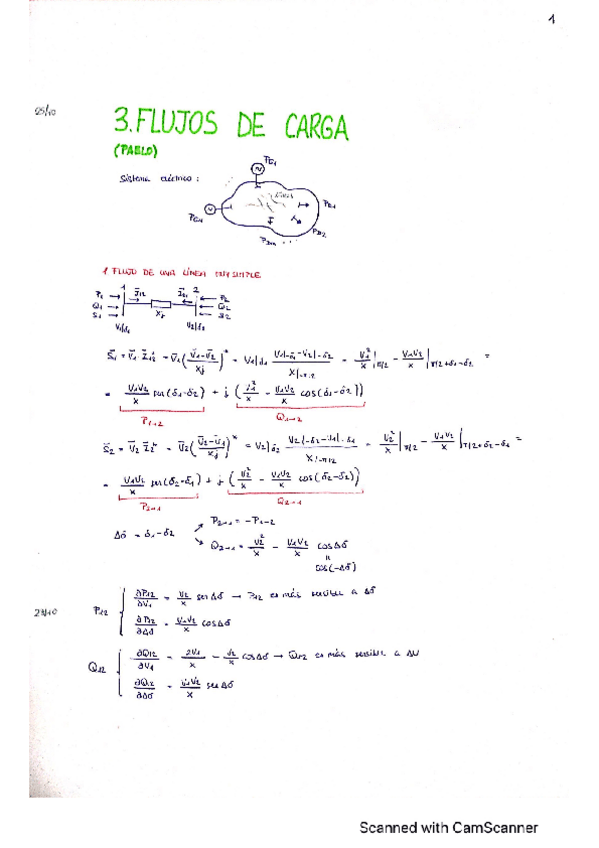 1
25/10
3. FLUJOS DE CARGA
(PABLO)
Sistema eléctrico:
PG1
PG1
Líneas
PD1
PD2
PDn ...
1 FLUJO DE UNA LÍNEA SIMPLE
1 2
P1 → I12 I21 ← P2
Q1 → ← Q2
S1 → Xj ← S2
V1|δ1 V2|δ2
S1 = V1 · I12* = V1 ((V1-V2)/Xj)* = V1|δ1 (V1|-δ1 - V2|-δ2)/(X|-π/2) = V1²/X |π/2 - V1V2/X |π/2+δ1-δ2 =
= V1V2/X sen(δ1-δ2) + j (V1²/X - V1V2/X cos(δ1-δ2))
P1→2 Q1→2
S2 = V2 I21* = V2 ((V2-V1)/Xj)* = V2|δ2 (V2|-δ2 - V1|-δ1)/(X|-π/2) = V2²/X |π/2 - V1V2/X |π/2+δ2-δ1 =
= V1V2/X sen(δ2-δ1) + j (V2²/X - V1V2/X cos(δ2-δ1))
P2→1 Q2→1
Δδ = δ1-δ2
P2→1 = -P1→2
Q2→1 = V2²/X - V1V2/X cosΔδ
=
cos(-Δδ)
P12 ∂P12/∂V1 = V2/X senΔδ → P12 es más sensible a Δδ
∂P12/∂Δδ = V1V2/X cosΔδ
Q12 ∂Q12/∂V1 = 2V1/X - V2/X cosΔδ → Q12 es más sensible a ΔV
∂Q12/∂Δδ = V1V2/X senΔδ
Scanned with CamScanner